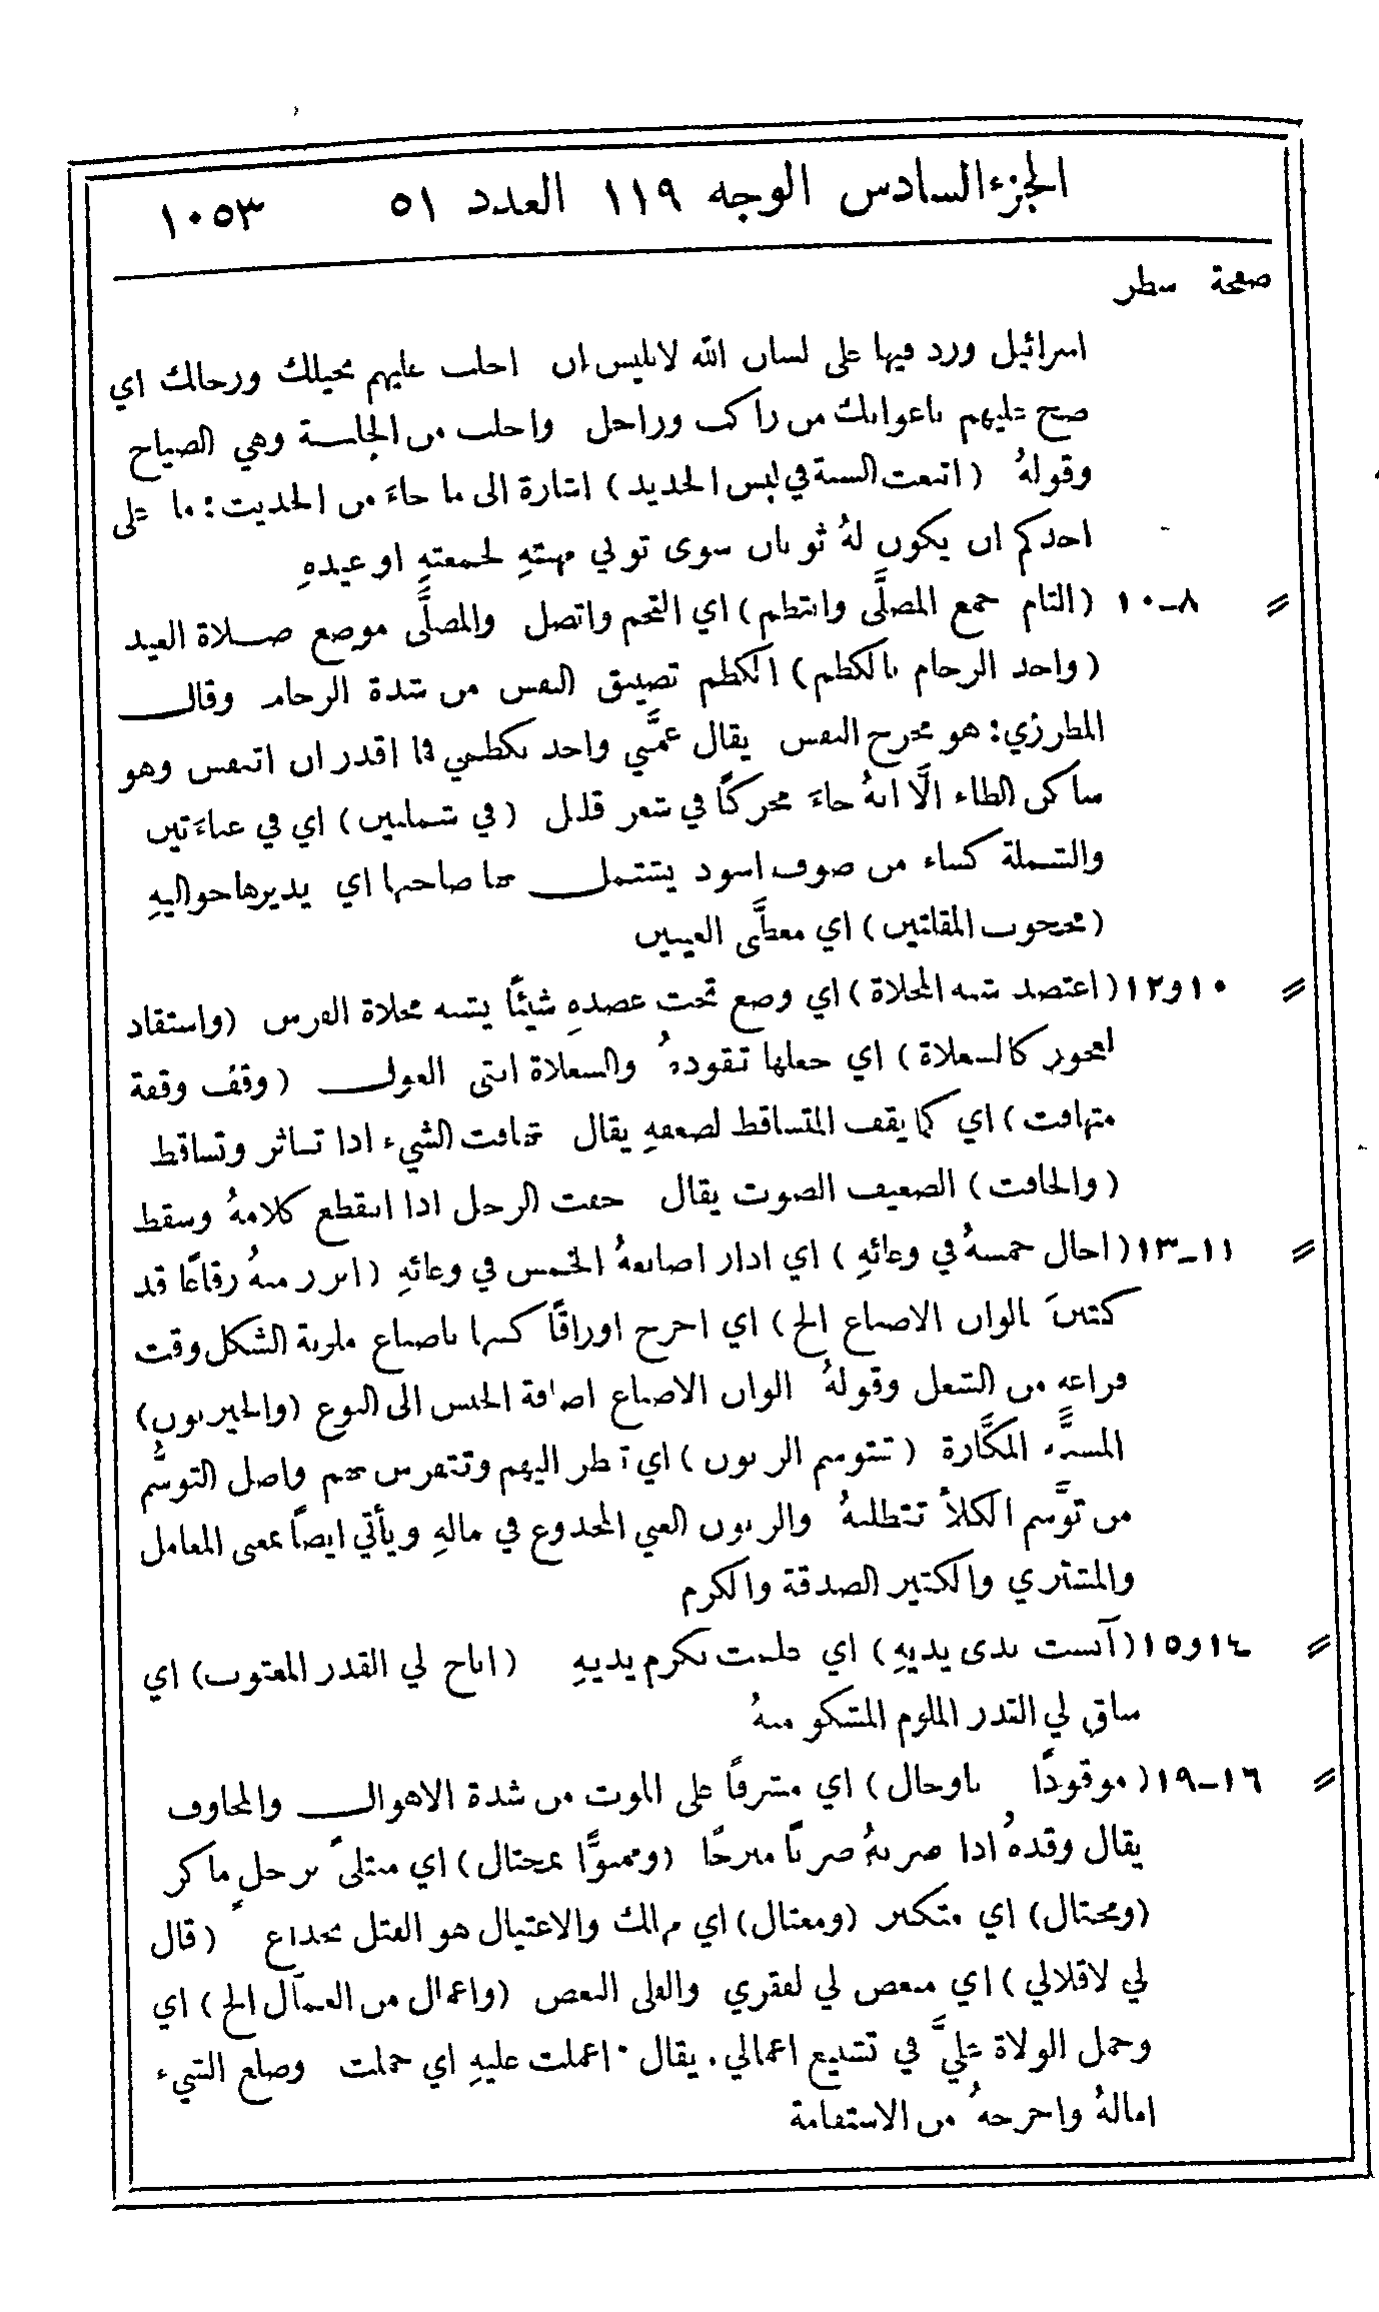 الجزء السادس الوجه ١١٩ العدد ٥١ ١٠٥٣
صفحة سطر
اسرائيل ورد فيها على لسان الله لابليس ان اجلب عليهم بخيلك ورجالك اي
صح عليهم باعوانك من راكب وراجل واجلب من الجلبة وهي الصياح
وقولهُ (اتبعت السنة في لبس الجديد) اشارة الى ما جاءَ من الحديث: ما على
احدكم ان يكون لهُ ثوبان سوى ثوبي مهنتهِ لجمعتهِ او عيدهِ
〃 ٨-١٠ (التام جمع المصلَّى وانتظم) اي التحم واتصل والمصلَّى موضع صلاة العيد
(واخذ الزحام بالكظم) الكظم تضييق النفس من شدة الزحام وقال
المطرزي: هو مخرج النفس يقال غمَّني واخذ بكظمي فما اقدر ان اتنفس وهو
ساكن الظاء الَّا انهُ جاءَ محركًا في شعر قليل (في شملتين) اي في عباءَتين
والشملة كساء من صوف اسود يشتمل بها صاحبها اي يديرها حواليهِ
(محجوب المقلتين) اي مغطَّى العينين
〃 ١٠و١٢ (اعتضد شبه المخلاة) اي وضع تحت عضدهِ شيئًا يشبه مخلاة الفرس (واستقاد
لعجوز كالسعلاة) اي جعلها تقودهُ والسعلاة انثى الغول (وقف وقفة
متهافت) اي كما يقف المتساقط لضعفهِ يقال تهافت الشيء اذا تناثر وتساقط
(والخافت) الضعيف الصوت يقال خفت الرجل اذا انقطع كلامهُ وسقط
〃 ١١-١٣ (اجال خمسهُ في وعائهِ) اي ادار اصابعهُ الخمس في وعائهِ (ابرز منهُ رقاعًا قد
كتبنَ بالوان الاصباغ الخ) اي اخرج اوراقًا كتبها باصباغ ملونة الشكل وقت
فراغه من الشغل وقولهُ الوان الاصباغ اضافة الجنس الى النوع (والحيزبون)
المسنَّة المكَّارة (تتوسم الزبون) اي تنظر اليهم وتتفرس بهم واصل التوسُّم
من توَّسم الكلأ تتطلبهُ والزبون الغبي المخدوع في مالهِ ويأتي ايضًا بمعنى المعامل
والمشتري والكثير الصدقة والكرم
〃 ١٤و١٥ (آنست ندى يديهِ) اي علمت بكرم يديهِ (اتاح لي القدر المعتوب) اي
ساق لي القدر الملوم المشكو منهُ
〃 ١٦-١٩ (موقوذًا باوجال) اي مشرفًا على الموت من شدة الاهوال والمخاوف
يقال وقذهُ اذا ضربهُ ضربًا مبرحًا (وممنوًّا بمحتال) اي مبتلىً برجلٍ ماكر
(ومختال) اي متكبر (ومغتال) اي مهلك والاغتيال هو القتل بخداع (قال
لي لاقلالي) اي مبغض لي لفقري والقلى البغض (واعمال من العمَّال الخ) اي
وحمل الولاة عليَّ في تضييع اعمالي. يقال اعملت عليهِ اي حملت وضلع الشيء
امالهُ واخرجهُ من الاستقامة